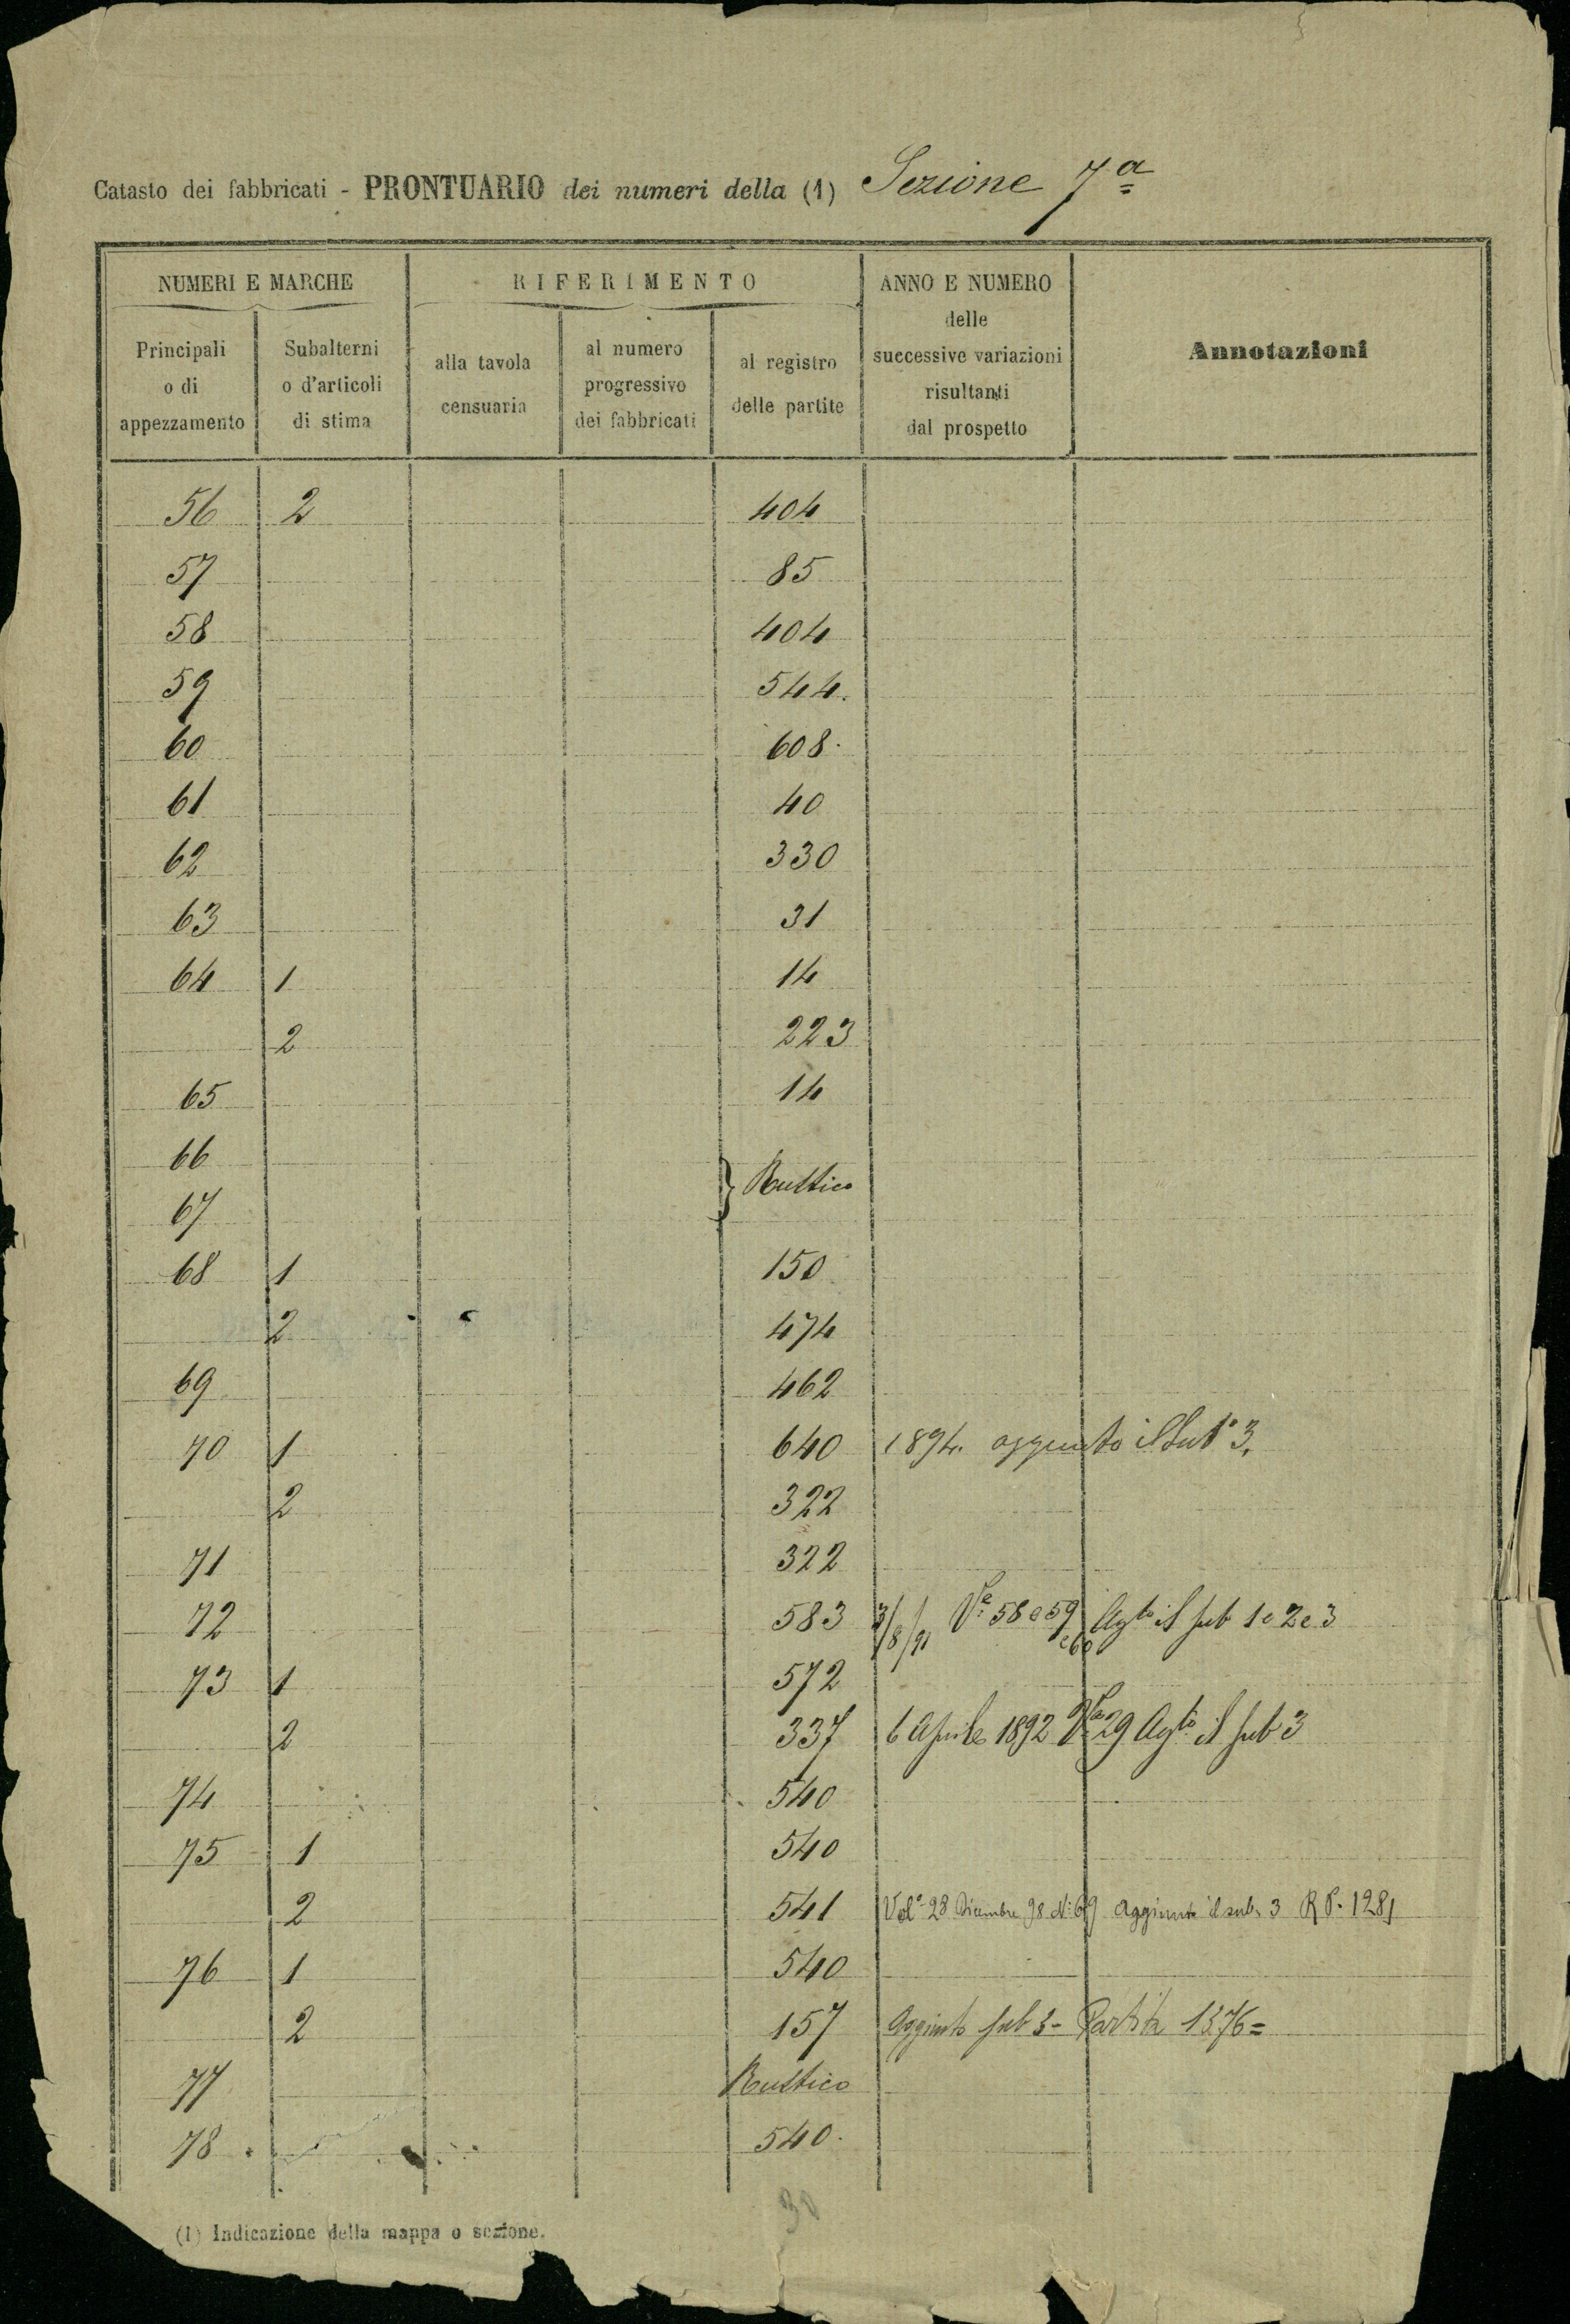 Catasto dei fabbricati - PRONTUARIO dei numeri della (1) Sezione 7ª
NUMERI E MARCHE
RIFERIMENTO
ANNO E NUMERO delle successive variazioni risultanti dal prospetto
Annotazioni
Principali o di appezzamento
Subalterni o d'articoli di stima
alla tavola censuaria
al numero progressivo dei fabbricati
al registro delle partite
56 2 404
57 85
58 404
59 544.
60 608.
61 40
62 330
63 31
64 1 14
2 223
65 14
66
} Rustico
67
68 1 150
2 474
69 462
70 1 640 1894. aggiunto il Sub° 3.
2 322
71 322
72 583 3/8/91 Ve 58 e 59 e 60 Agto il sub 1 e 2 e 3
73 1 572
2 337 6 Aprile 1892 29 Agto il sub 3
74 540
75 1 540
2 541 Vol° 28 Dicembre 98 N. 69 Aggiunto il sub. 3 R P. 1281
76 1 540
2 157 Aggiunto sub 3 - Partita 1376 =
77 Rustico
78 540.
30
(1) Indicazione della mappa o sezione.